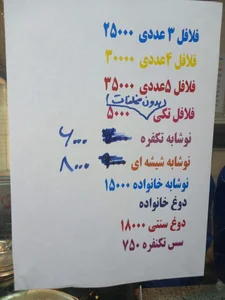 فلافل ۳ عددی ۲۵۰۰۰
فلافل ۴ عددی ۳۰۰۰۰
فلافل ۵ عددی ۳۵۰۰۰
(بدون مخلفات)
فلافل تکی ۵۰۰۰
نوشابه تکفره ۶۰۰۰
نوشابه شیشه ای ۸۰۰۰
نوشابه خانواده ۱۵۰۰۰
دوغ خانواده
دوغ سنتی ۱۸۰۰۰
سس تکنفره ۷۵۰